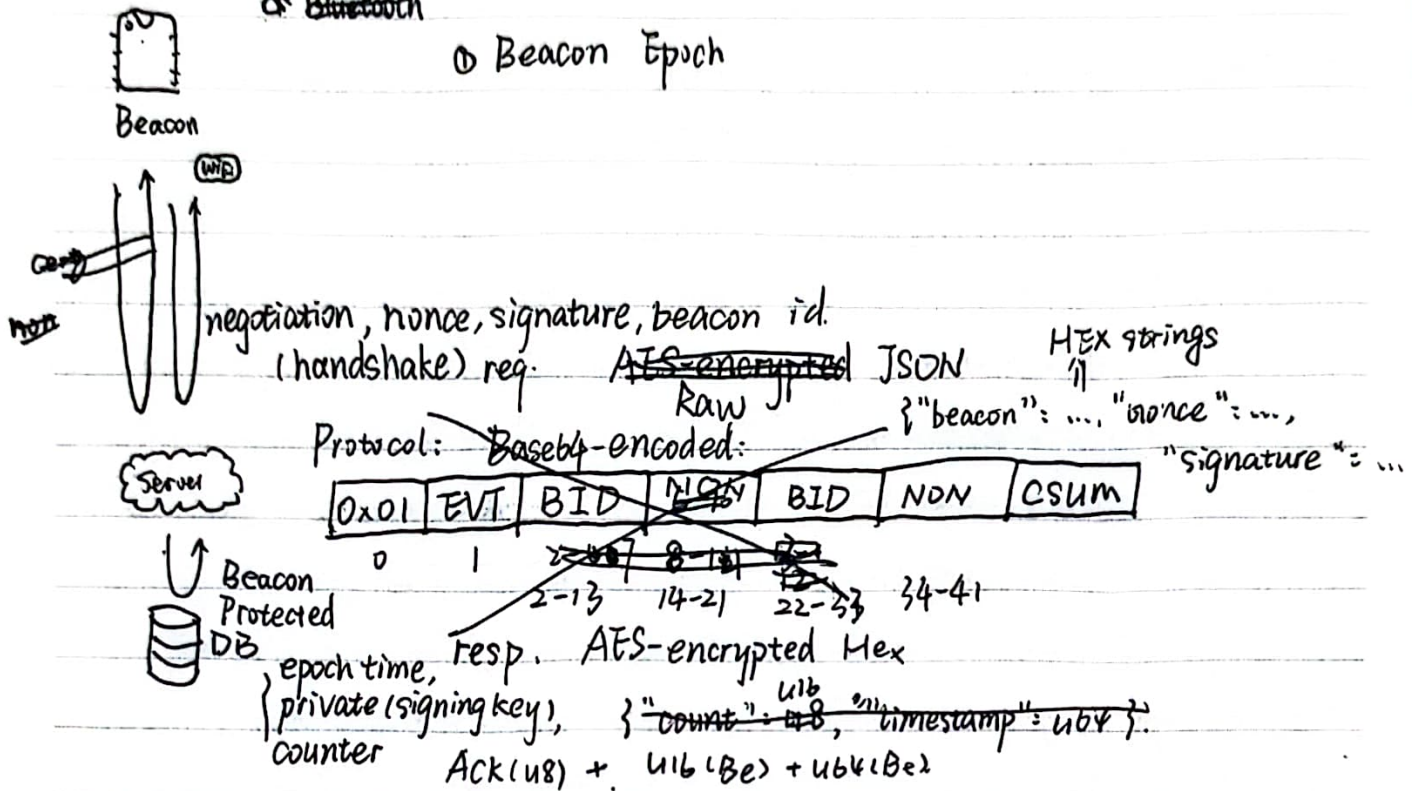 ① Beacon Epoch
Beacon
Wifi
negotiation, nonce, signature, beacon id.
(handshake) req. AES-encrypted JSON
Raw
HEX strings
{"beacon": ..., "nonce": ...,
"signature": ...
Protocol: Base64-encoded:
Server
0x01 EVT BID NON BID NON CSUM
0 1
2-13 14-21 22-33 34-41
Beacon
Protected
DB
resp. AES-encrypted Hex
epoch time,
private (signing key),
counter
u16
{"count": u8, "timestamp": u64}.
Ack(u8) + u16(Be) + u64(Be)